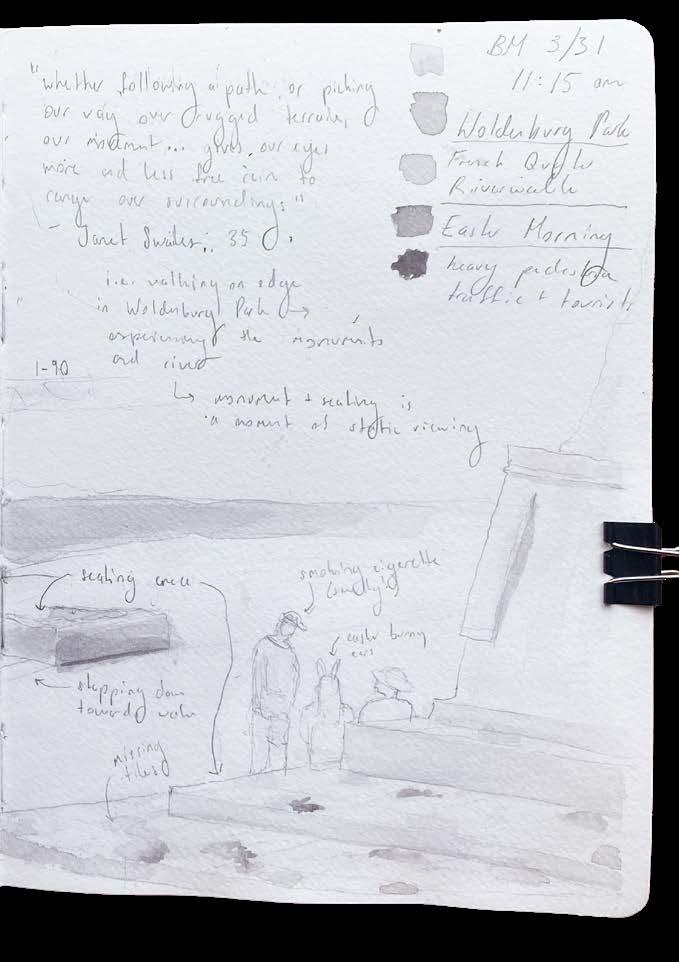 "whether following a path or picking
our way over rugged terrain,
our movement... gives our eyes
more and less free rein to
range over surroundings"
- Janet Swailes, 35
i.e. walking on edge
in Woldenburg Park →
experiencing the monuments
and river
↳ monument + seating is
a moment of static viewing
BM 3/31
11:15 am
Woldenburg Park
French Quarter
Riverwalk
Easter Morning
heavy pedestrian
traffic + tourists
1-90
seating area
smoking cigarette
easter bunny
ears
stepping down
towards water
missing
tiles